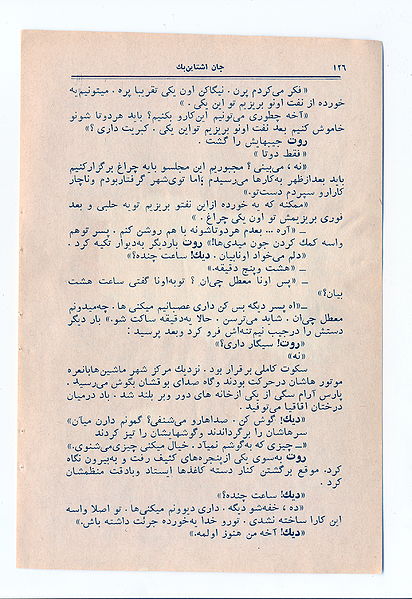 ۱۲۶ جان اشتاین‌بك
«فکر می‌کردم پرن . نیگاکن اون یکی تقریبا پره . میتونیم‌یه
خورده از نفت اونو بریزیم تو این یکی . »
«آخه چطوری می‌تونیم این‌کارو بکنیم؟ باید هردوتا شونو
خاموش کنیم بعد نفت اونو بریزیم تواین یکی . کبریت داری ؟»
روت جیبهایش را گشت .
« فقط دوتا »
«نه ، می‌بینی ؟ مجبوریم این مجلسو بایه چراغ برگزارکنیم
باید بعدازظهر به‌کارها می‌رسیدم ؛اما توی‌شهر گرفتاربودم وناچار
کارارو سپردم دست‌تو.»
«ممکنه که یه خورده ازاین نفتو بریزیم تویه حلبی و بعد
فوری بریزیمش تو اون یکی چراغ . »
ــ «آره ... بعدم هردوتاشونه با هم روشن کنم . پسر توهم
واسه کمك کردن جون میدی‌ها!» روت باردیگر به‌دیوار تکیه کرد .
«دلم می‌خواد اونابیان . دیك! ساعت چنده؟»
ــ «هشت وپنج دقیقه.»
ــ «پس اونا معطل چی‌ان ؟ توبه‌اونا گفتی ساعت هشت
بیان؟»
ــ«اه پسر دیگه بس کن داری عصبانیم میکنی ها . چه‌میدونم
معطل چی‌ان . شاید می‌ترسن . حالا یه‌دقیقه ساکت شو.» بار دیگر
دستش را درجیب نیم‌تنه‌اش فرو کرد وبعد پرسید :
«روت! سیگار داری؟»
«نه»
سکوت کاملی برقرار بود . نزدیك مرکز شهر ماشین‌هابانعره
موتور هاشان درحرکت بودند وگاه صدای بوقشان بگوش می‌رسید .
پارس آرام سگی از یکی ازخانه های دور وبر بلند شد . باد درمیان
درختان اقاقیا می‌توفید .
«دیك! گوش کن . صداهارو می‌شنفی؟ گمونم دارن میآن»
سرهاشان را برگرداندند وگوشهایشان را تیز کردند
«ــ‌چیزی که به‌گوشم نمیاد . خیال میکنی چیزی‌می‌شنوی.»
روت به‌سوی یکی ازپنجره‌های کثیف رفت و به‌بیرون نگاه
کرد. موقع برگشتن کنار دسته کاغذها ایستاد وبادقت منظمشان
کرد .
«دیك! ساعت چنده؟»
«ده ، خفه‌شو دیگه . داری دیوونم میکنی‌ها . تو اصلا واسه
این کارا ساخته نشدی . تورو خدا یه‌خورده جرئت داشته باش.»
«دیك! آخه من هنوز اولمه.»